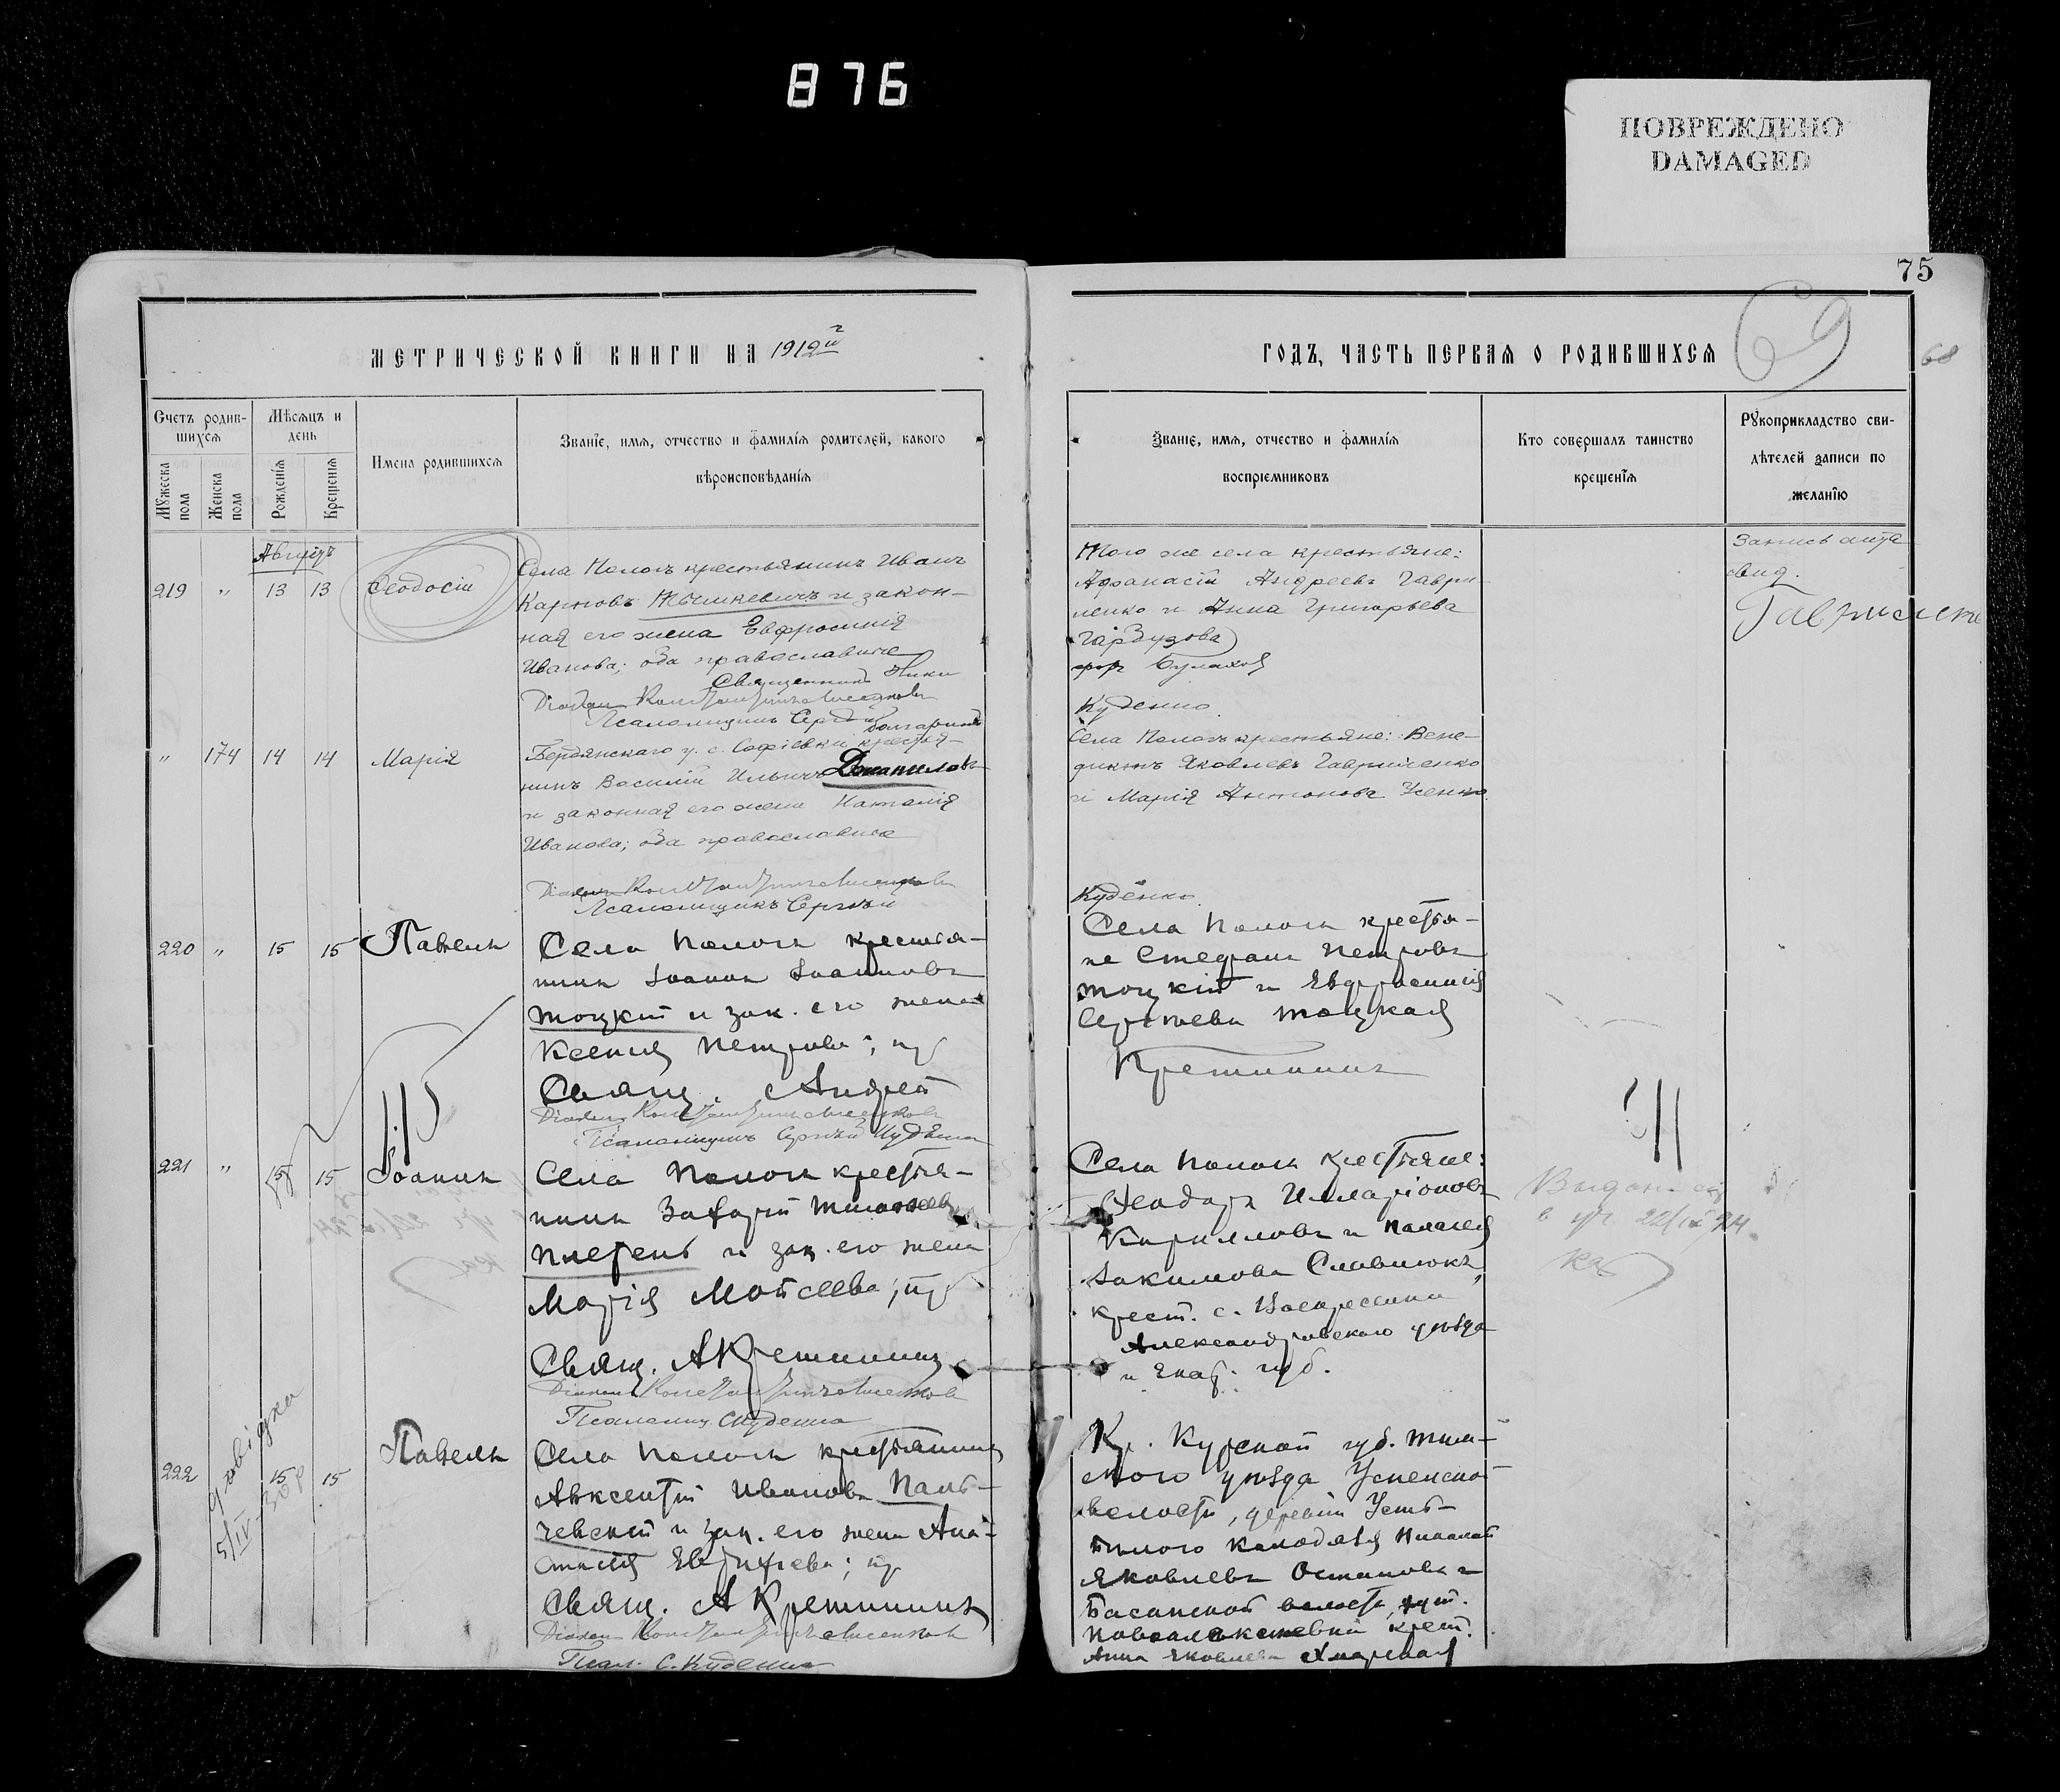 876
ПОВРЕЖДЕНО
DAMAGED
75
69
68
МЕТРИЧЕСКОЙ КНИГИ НА 1912й г
ГОДЪ, ЧАСТЬ ПЕРВАЯ О РОДИВШИХСЯ
Счетъ родившихся
Мужеска пола
Женска пола
Мѣсяцъ и день
Рожденія
Крещенія
Имена родившихся
Званіе, имя, отчество и фамилія родителей, какого
вѣроисповѣданія
Званіе, имя, отчество и фамилія
воспріемниковъ
Кто совершалъ таинство
крещенія
Рукоприкладство сви-
дѣтелей записи по
желанію
Августъ
219 " 13 13 Ѳеодосій
Села Пологъ крестьянинъ Иванъ
Карповъ Тышкевичъ и закон-
ная его жена Евфросинія
Иванова; оба православные
Священникъ
Діаконъ
Псаломщикъ Сергѣй
Того же села крестьяне:
Афанасій Андреевъ Гаври-
ленко и Анна Григорьева
Гарбузова
Куденко
Запись
свид.
Гавриленко
" 174 14 14 Марія
Бердянскаго у. с. Софіевки крестья-
нинъ Василій Ильичъ
и законная его жена Наталія
Иванова; оба православные
Діаконъ
Псаломщикъ Сергѣй
Села Пологъ крестьяне: Вене-
диктъ Яковлевъ Гавриленко
и Марія Антонова Усенко
Куденко
220 " 15 15 Павелъ
Села Пологъ крестья-
нинъ Іоаннъ Іоанновъ
Тоцкій и зак. его жена
Ксенія Петрова; пр
Свящ. Андрей
Діаконъ
Псаломщикъ Сергѣй Куденко
Села Пологъ крестья-
не Стефанъ Петровъ
Тоцкій и Евфросинія
Сергѣева Тоцкая
Кретининъ
221 " 15 15 Іоаннъ
Села Пологъ крестья-
нинъ Захарій Тимофеевъ
Плетень и зак. его жена
Марія Мойсеева; пр
Свящ. А Кретининъ
Діаконъ
Псаломщ. С Куденко
Села Пологъ крестьяне:
Ѳеодоръ Илларіоновъ
Кирилловъ и Палагея
Іакимова Славиюкъ,
крест. с. Воскресенки
Александровскаго уѣзда
и Екат. губ.
в
22/IX 74.
222 " 15 15 Павелъ
довідка
5/IV-30р
Села Пологъ крестьянинъ
Авксентій Ивановъ Паль-
чевскій и зак. его жена Ана-
стасія ; пр
Свящ. А Кретининъ
Діаконъ
Псал. С. Куденко
Кр. Курской губ. Тим-
ского уѣзда Успенской
волости, деревни Усть-
Колодезя Николай
Яковлевъ Остапова и
Басанской волости, хут.
Новоалексеевки крест.
Анна Яковлева